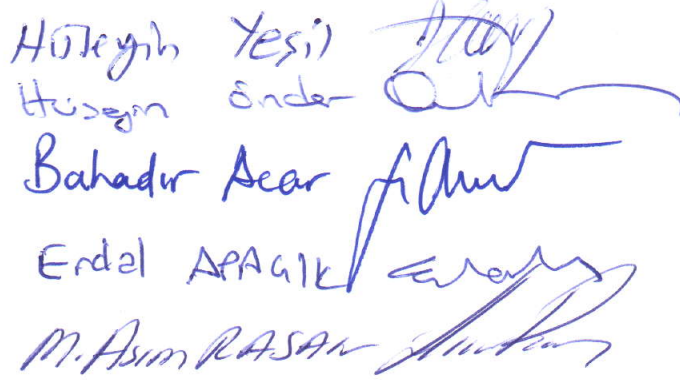 Hüseyin Yeşil
Hüseyin Önder
Bahadır Acar
Erdal APAÇIK
M. Asım RASAN